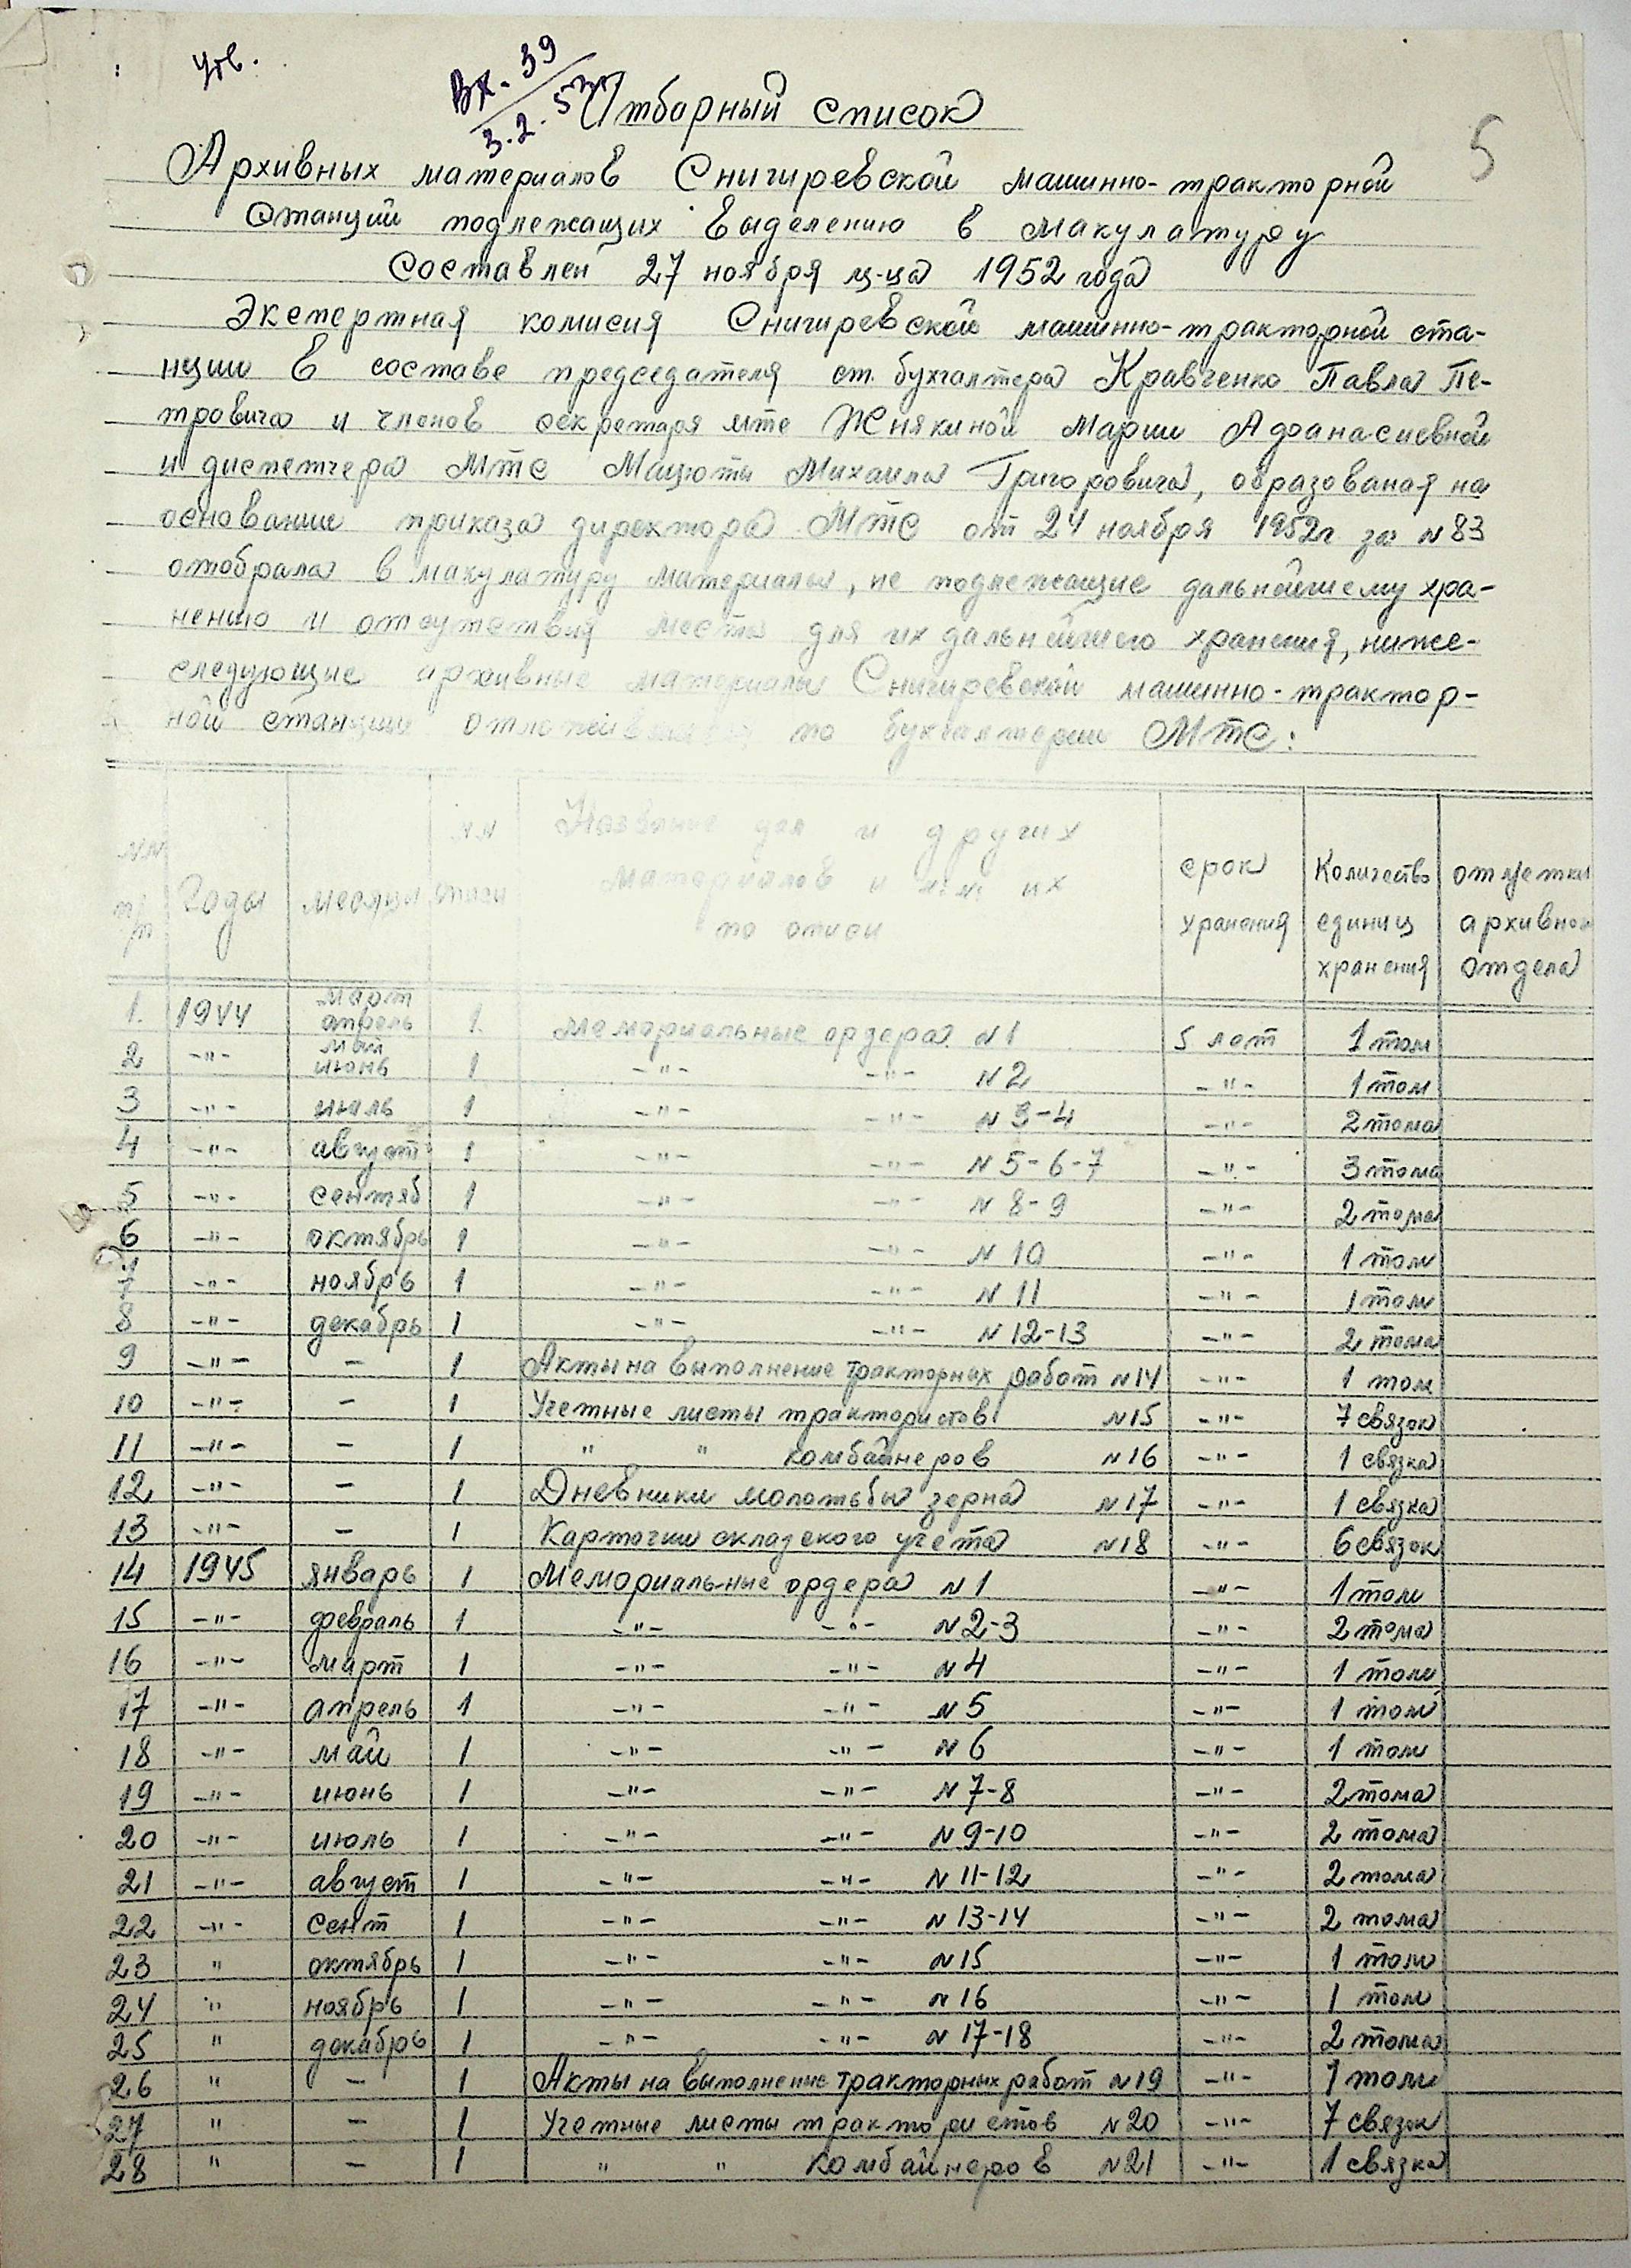 Утв.
Вх. 39
3.2.53г
5
Отборный список
Архивных материалов Снигиревской машинно-тракторной
станции подлежащих выделению в макулатуру
Составлен 27 ноября м-ца 1952 года
Экспертная комисия Снигиревской машинно-тракторной ста-
нции в составе председателя ст. бухгалтера Кравченко Павла Пе-
тровича и членов секретаря мтс Жнякиной Марии Афанасиевной
и диспетчера МТС Мацюты Михаила Григоровича, образованая на
основании приказа директора МТС от 24 ноября 1952г за N 83
отобрала в макулатуру материалы, не подлежащие дальнейшему хра-
нению и отсутствия места для их дальнейшего хранения, ниже-
следующие архивные материалы Снигиревской машинно-трактор-
ной станции по бухгалтерии МТС:
NN п/п | Годы | месяцы | NN описи | Название дел и других материалов и их по описи | срок хранения | Количество единиц хранения | отметки архивного отдела
1. 1944 март апрель 1. Мемориальные ордера N 1 5 лет 1 том
2 -"- май июнь 1 -"- -"- N 2 -"- 1 том
3 -"- июль 1 -"- -"- N 3-4 -"- 2 тома
4 -"- август 1 -"- -"- N 5-6-7 -"- 3 тома
5 -"- сентяб 1 -"- -"- N 8-9 -"- 2 тома
6 -"- октябрь 1 -"- -"- N 10 -"- 1 том
7 -"- ноябрь 1 -"- -"- N 11 -"- 1 том
8 -"- декабрь 1 -"- -"- N 12-13 -"- 2 тома
9 -"- - 1 Акты на выполнение тракторных работ N 14 -"- 1 том
10 -"- - 1 Учетные листы трактористов N 15 -"- 7 связок
11 -"- - 1 " " комбайнеров N 16 -"- 1 связка
12 -"- - 1 Дневники молотьбы зерна N 17 -"- 1 связка
13 -"- - 1 Карточки складского учета N 18 -"- 6 связок
14 1945 январь 1 Мемориальные ордера N 1 -"- 1 том
15 -"- февраль 1 -"- -"- N 2-3 -"- 2 тома
16 -"- март 1 -"- -"- N 4 -"- 1 том
17 -"- апрель 1 -"- -"- N 5 -"- 1 том
18 -"- май 1 -"- -"- N 6 -"- 1 том
19 -"- июнь 1 -"- -"- N 7-8 -"- 2 тома
20 -"- июль 1 -"- -"- N 9-10 -"- 2 тома
21 -"- август 1 -"- -"- N 11-12 -"- 2 тома
22 -"- сент 1 -"- -"- N 13-14 -"- 2 тома
23 " октябрь 1 -"- -"- N 15 -"- 1 том
24 " ноябрь 1 -"- -"- N 16 -"- 1 том
25 " декабрь 1 -"- -"- N 17-18 -"- 2 тома
26 " - 1 Акты на выполнение тракторных работ N 19 -"- 1 том
27 " - 1 Учетные листы трактористов N 20 -"- 7 связок
28 " - 1 " " комбайнеров N 21 -"- 1 связка